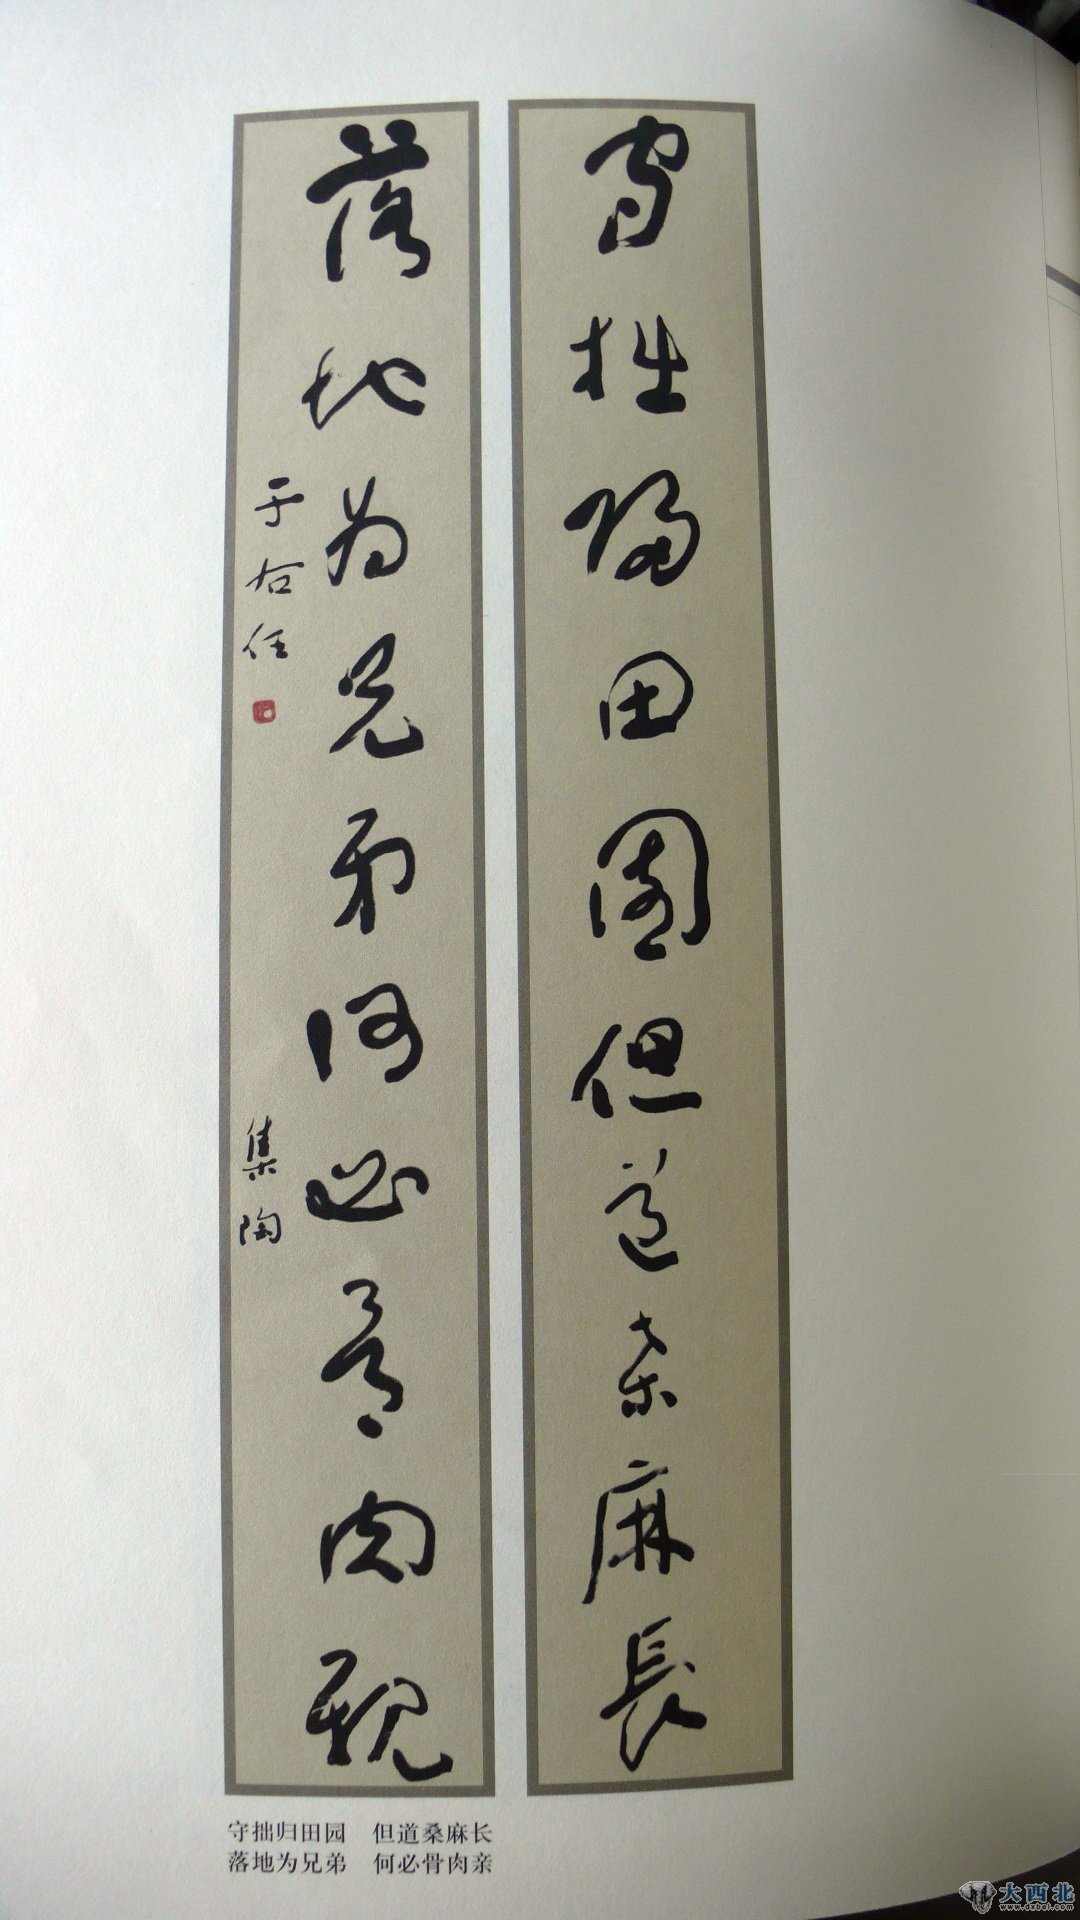 守拙歸田園但道桑麻長
落地為兄弟何必骨肉親
集陶
于右任
守拙归田园　但道桑麻长
落地为兄弟　何必骨肉亲
大西北
www.dxbei.com